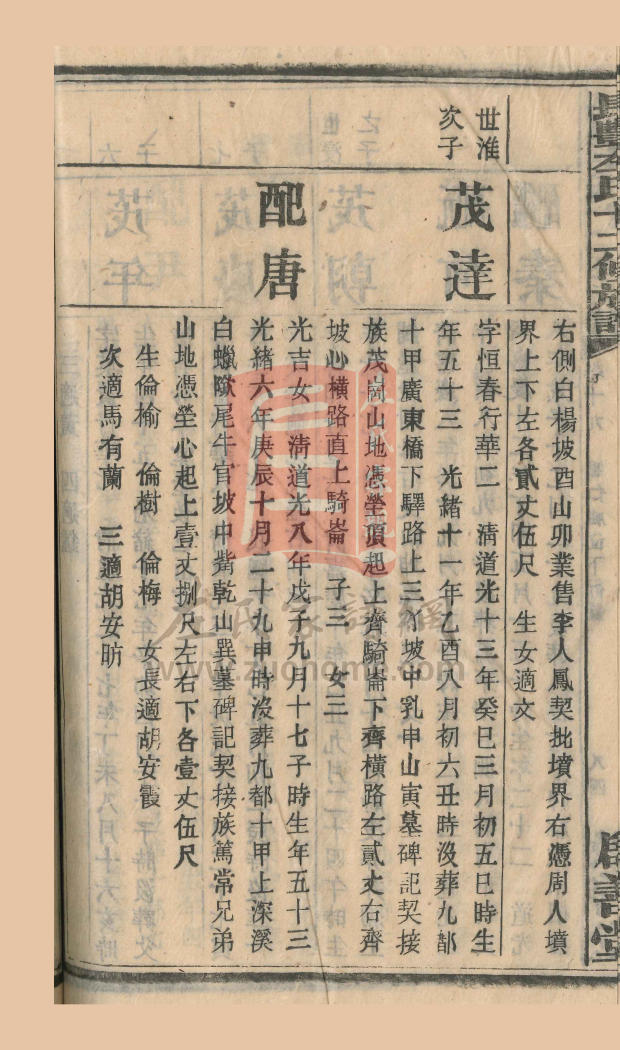 長豐左氏十二修族譜
右側白楊坡酉山卯業售李人鳳契批墳界右憑周人墳
界上下左各貳丈伍尺　生女適文
世淮
次子
茂達
字恒春行華二　清道光十三年癸巳三月初五巳時生
年五十三　光緒十一年乙酉八月初六丑時沒葬九都
十甲廣東橋下驛路上三丫坡中乳申山寅墓碑記契接
族茂崗山地憑塋頂起上齊騎崙下齊橫路左貳丈右齊
坡心橫路直上騎崙　子三　女三
配唐
光吉女　清道光八年戊子九月十七子時生年五十三
光緒六年庚辰十月二十九申時沒葬九都十甲上深溪
白蠟歐尾牛官坡中嘴乾山巽墓碑記契接族篤常兄弟
山地憑塋心起上壹丈捌尺左右下各壹丈伍尺
生倫榆　倫樹　倫梅　女長適胡安霞
次適馬有蘭　三適胡安昉
左氏家譜網
www.zuohome.com